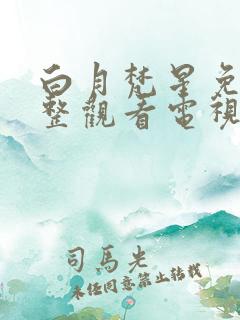 白月梵星免
整觀看電視
司馬光
未经同意禁止转载